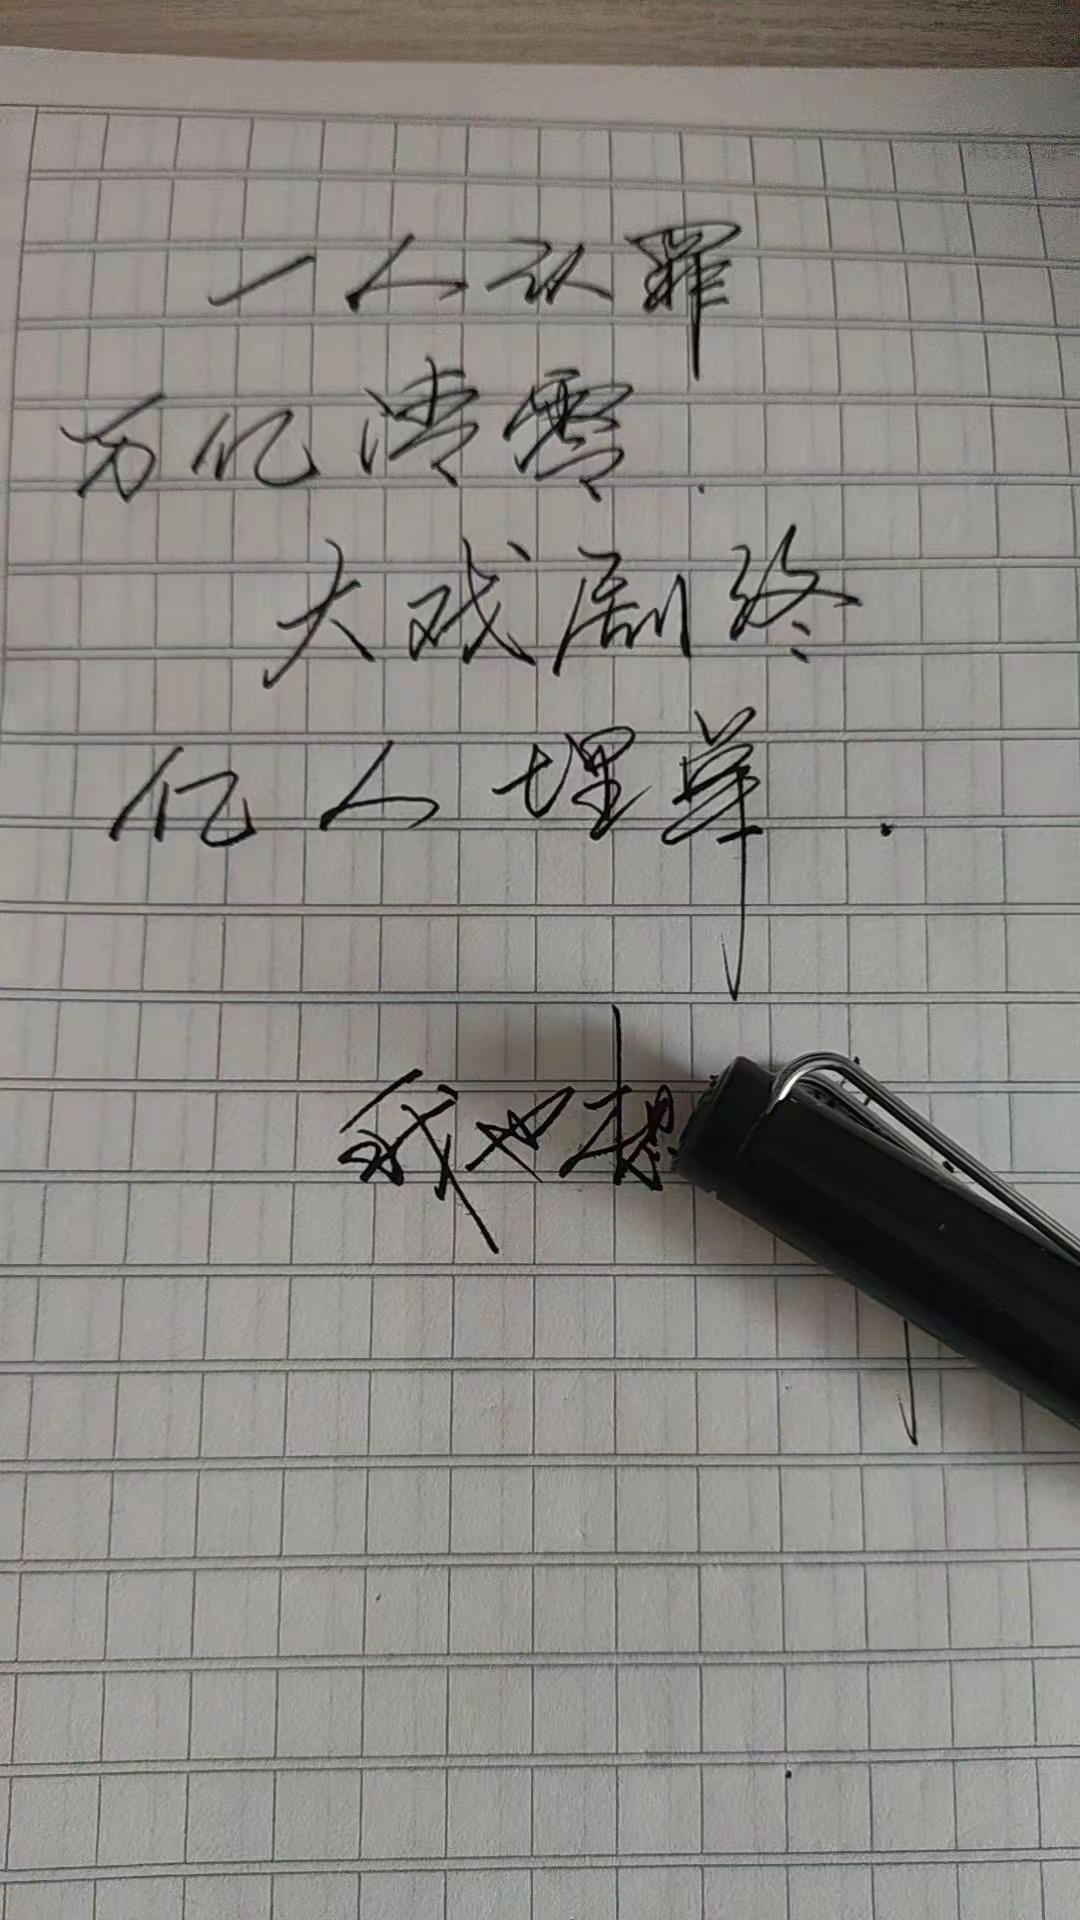 一人认罪
万亿清零.
大戏剧终
亿人埋单.
我也想